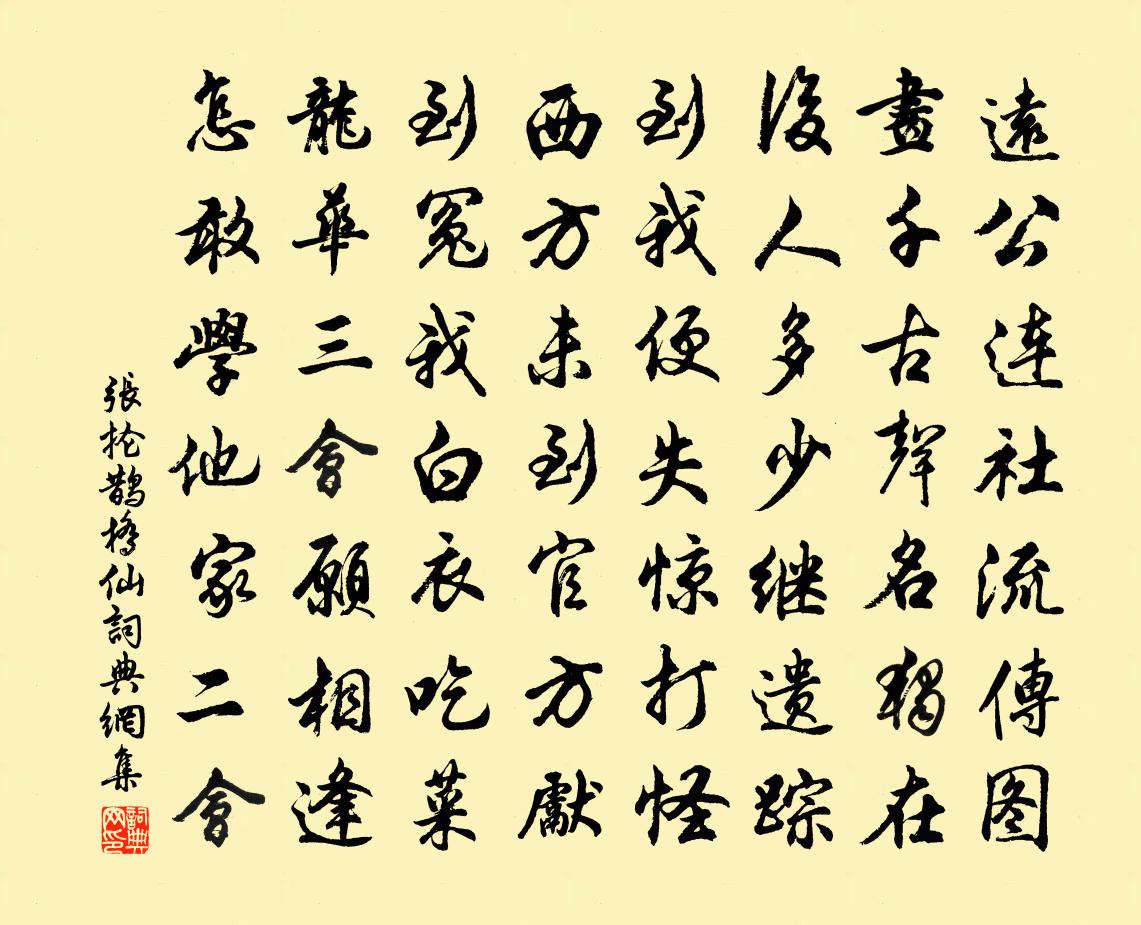 遠公連社流傳图
畫千古聲名獨在
後人多少继遗踪
到我便失惊打怪
西方未到官方獻
到冤我白衣吃菜
龍華三會願相逢
怎敢學他家二會
張抡鵲橋仙詞典網集
詞典網印